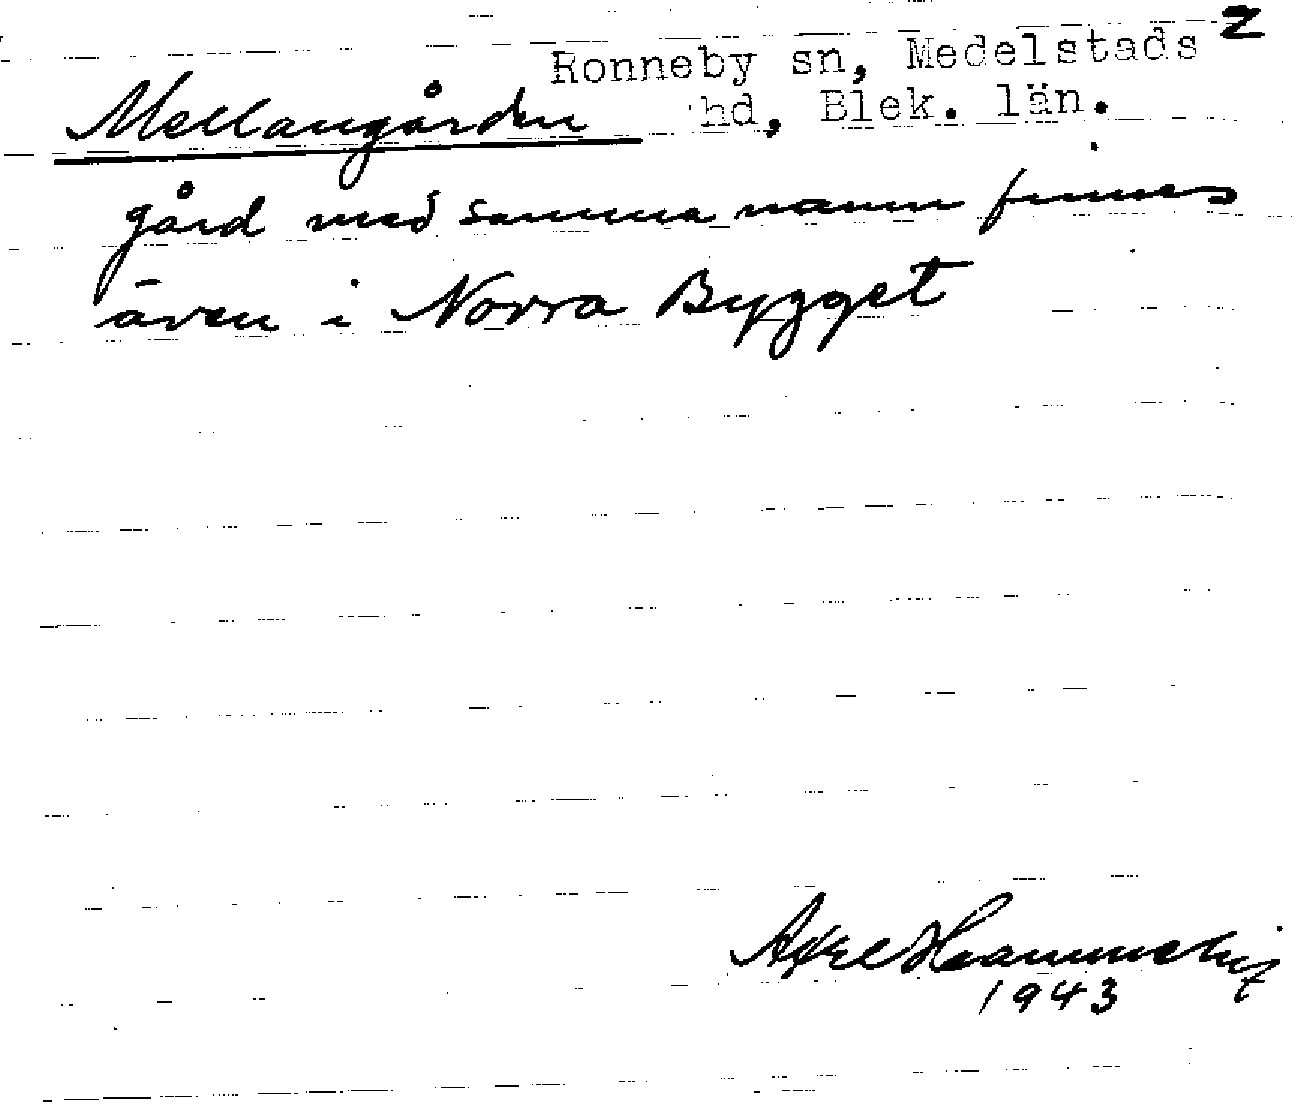 Ronneby sn, Medelstads 2
hd, Blek. län.
Mellangården
gård med samma namn finnes
även i Norra Bygget
Axel
1943